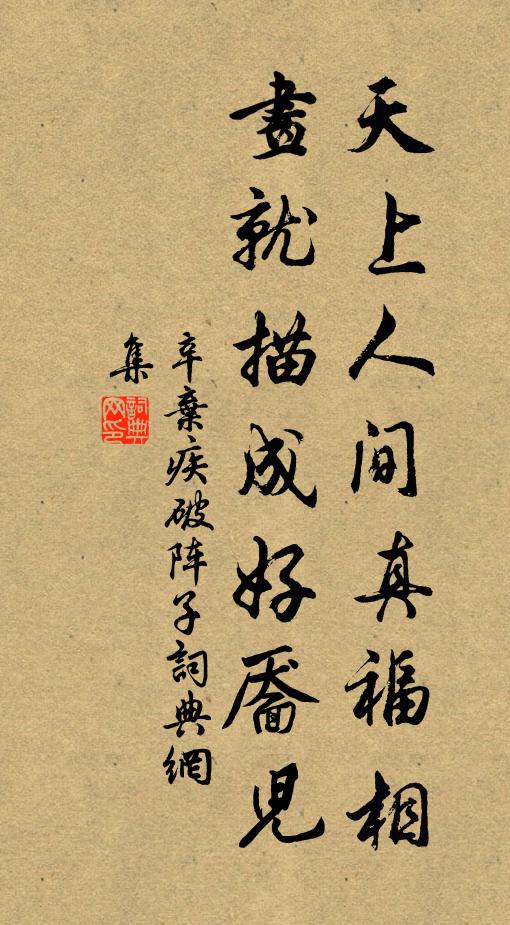 天上人间真福相
畫就描成好靨児
辛棄疾破阵子詞典網
集
詞典網印